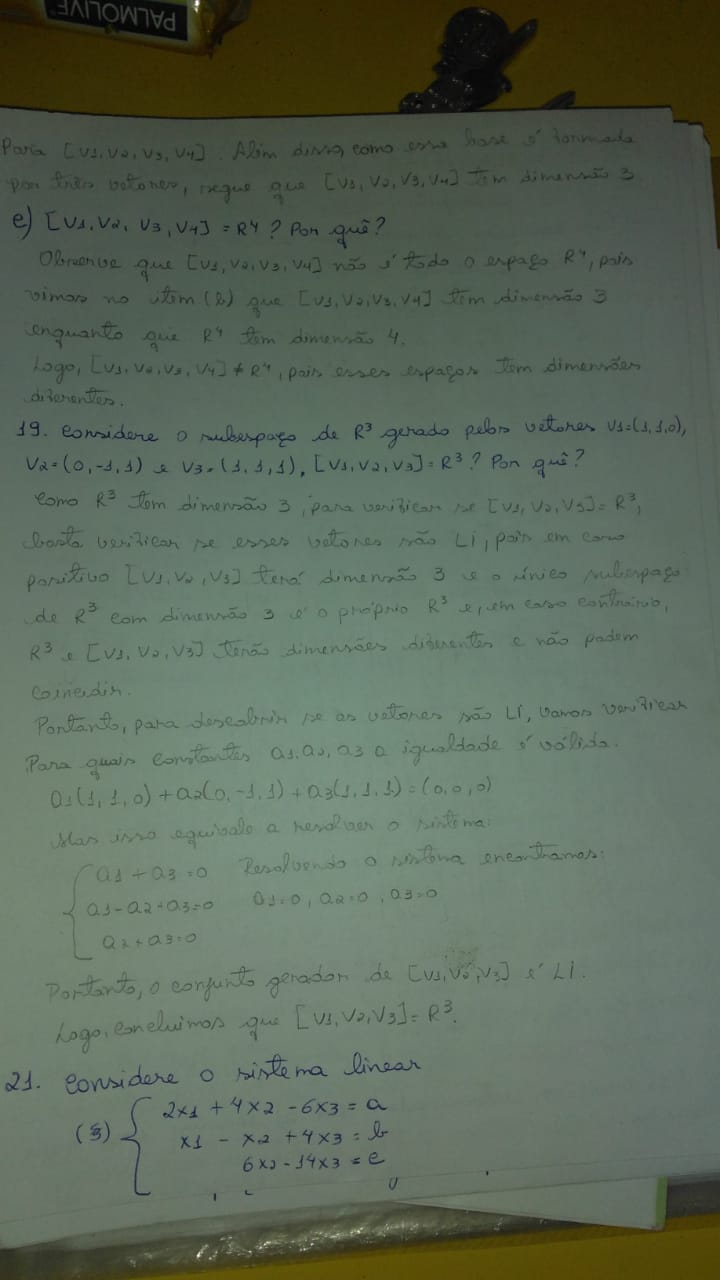 PALMOLIVE
Para [V1, V2, V3, V4]. Além disso, como essa base é formada
por três vetores, segue que [V1, V2, V3, V4] tem dimensão 3.
e) [V1, V2, V3, V4] = R⁴? Por quê?
Observe que [V1, V2, V3, V4] não é todo o espaço R⁴, pois
vimos no item (b) que [V1, V2, V3, V4] tem dimensão 3
enquanto que R⁴ tem dimensão 4.
Logo, [V1, V2, V3, V4] ≠ R⁴, pois esses espaços tem dimensões
diferentes.
19. Considere o subespaço de R³ gerado pelos vetores V1=(1,1,0),
V2=(0,-1,1) e V3=(1,1,1), [V1, V2, V3]=R³? Por quê?
Como R³ tem dimensão 3, para verificar se [V1, V2, V3]=R³,
basta verificar se esses vetores são LI, pois em caso
positivo [V1, V2, V3] terá dimensão 3 e o único subespaço
de R³ com dimensão 3 é o próprio R³ e, em caso contrário,
R³ e [V1, V2, V3] terão dimensões diferentes e não podem
coincidir.
Portanto, para descobrir se os vetores são LI, vamos verificar
Para quais constantes a1, a2, a3 a igualdade é válida.
a1(1,1,0)+a2(0,-1,1)+a3(1,1,1)=(0,0,0)
Mas isso equivale a resolver o sistema:
a1+a3=0 Resolvendo o sistema encontramos:
a1-a2+a3=0 a1=0, a2=0, a3=0
a2+a3=0
Portanto, o conjunto gerador de [V1, V2, V3] é LI.
Logo, concluimos que [V1, V2, V3]=R³.
21. Considere o sistema linear
2x1 + 4x2 - 6x3 = a
(S) { x1 - x2 + 4x3 = b
6x2 - 14x3 = c